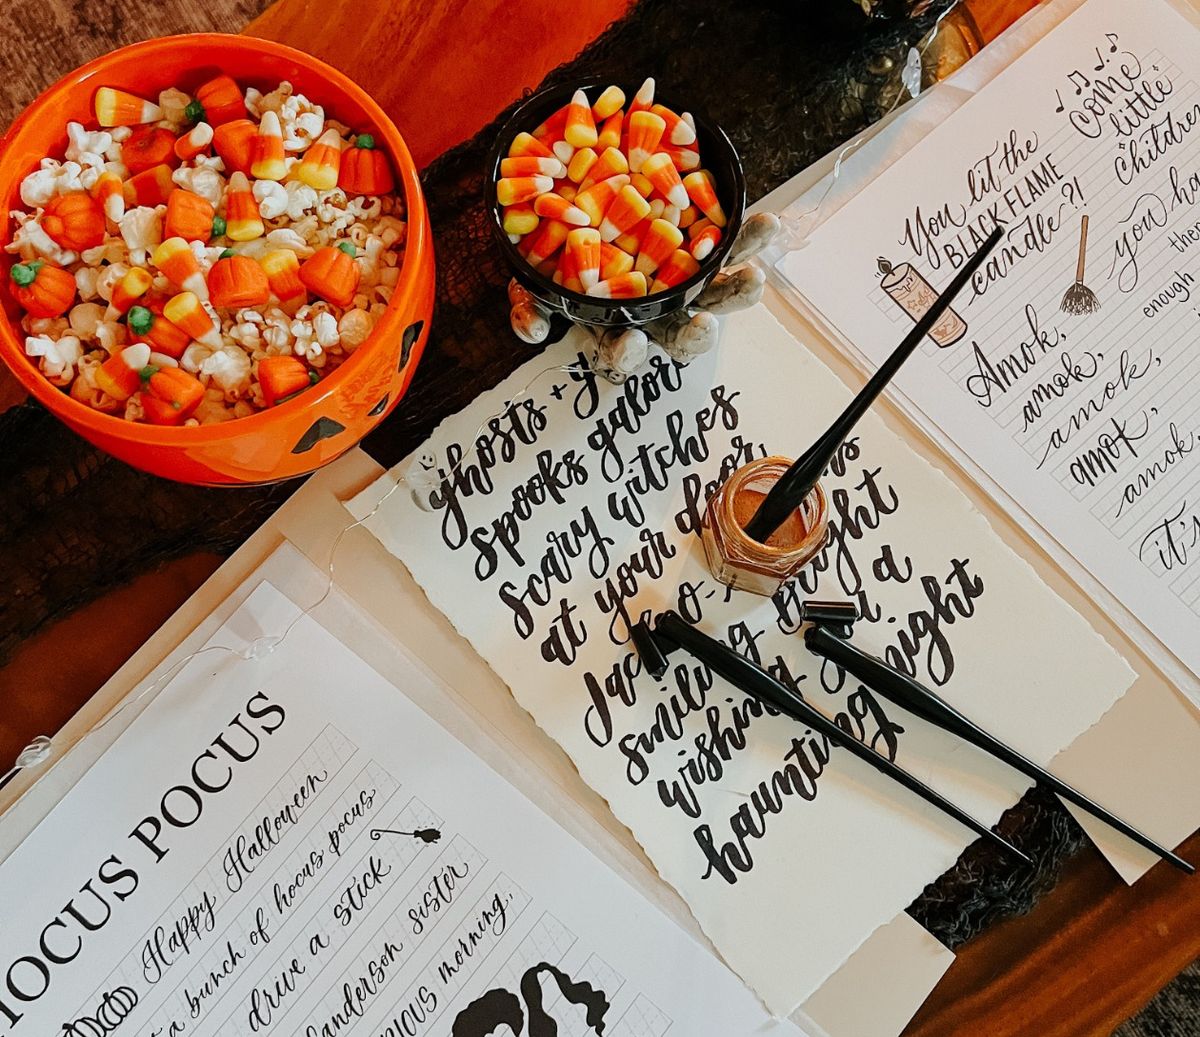 HOCUS POCUS
Happy Halloween
a bunch of hocus pocus
drive a stick
Sanderson sister
morning,
ghosts +
spooks galore
scary witches
at your door
smiling bright
wishing you a
haunting night
You lit the
BLACK FLAME
candle?!
Come
little
children
Amok,
amok,
amok,
amok,
amok,
it's
you
enough